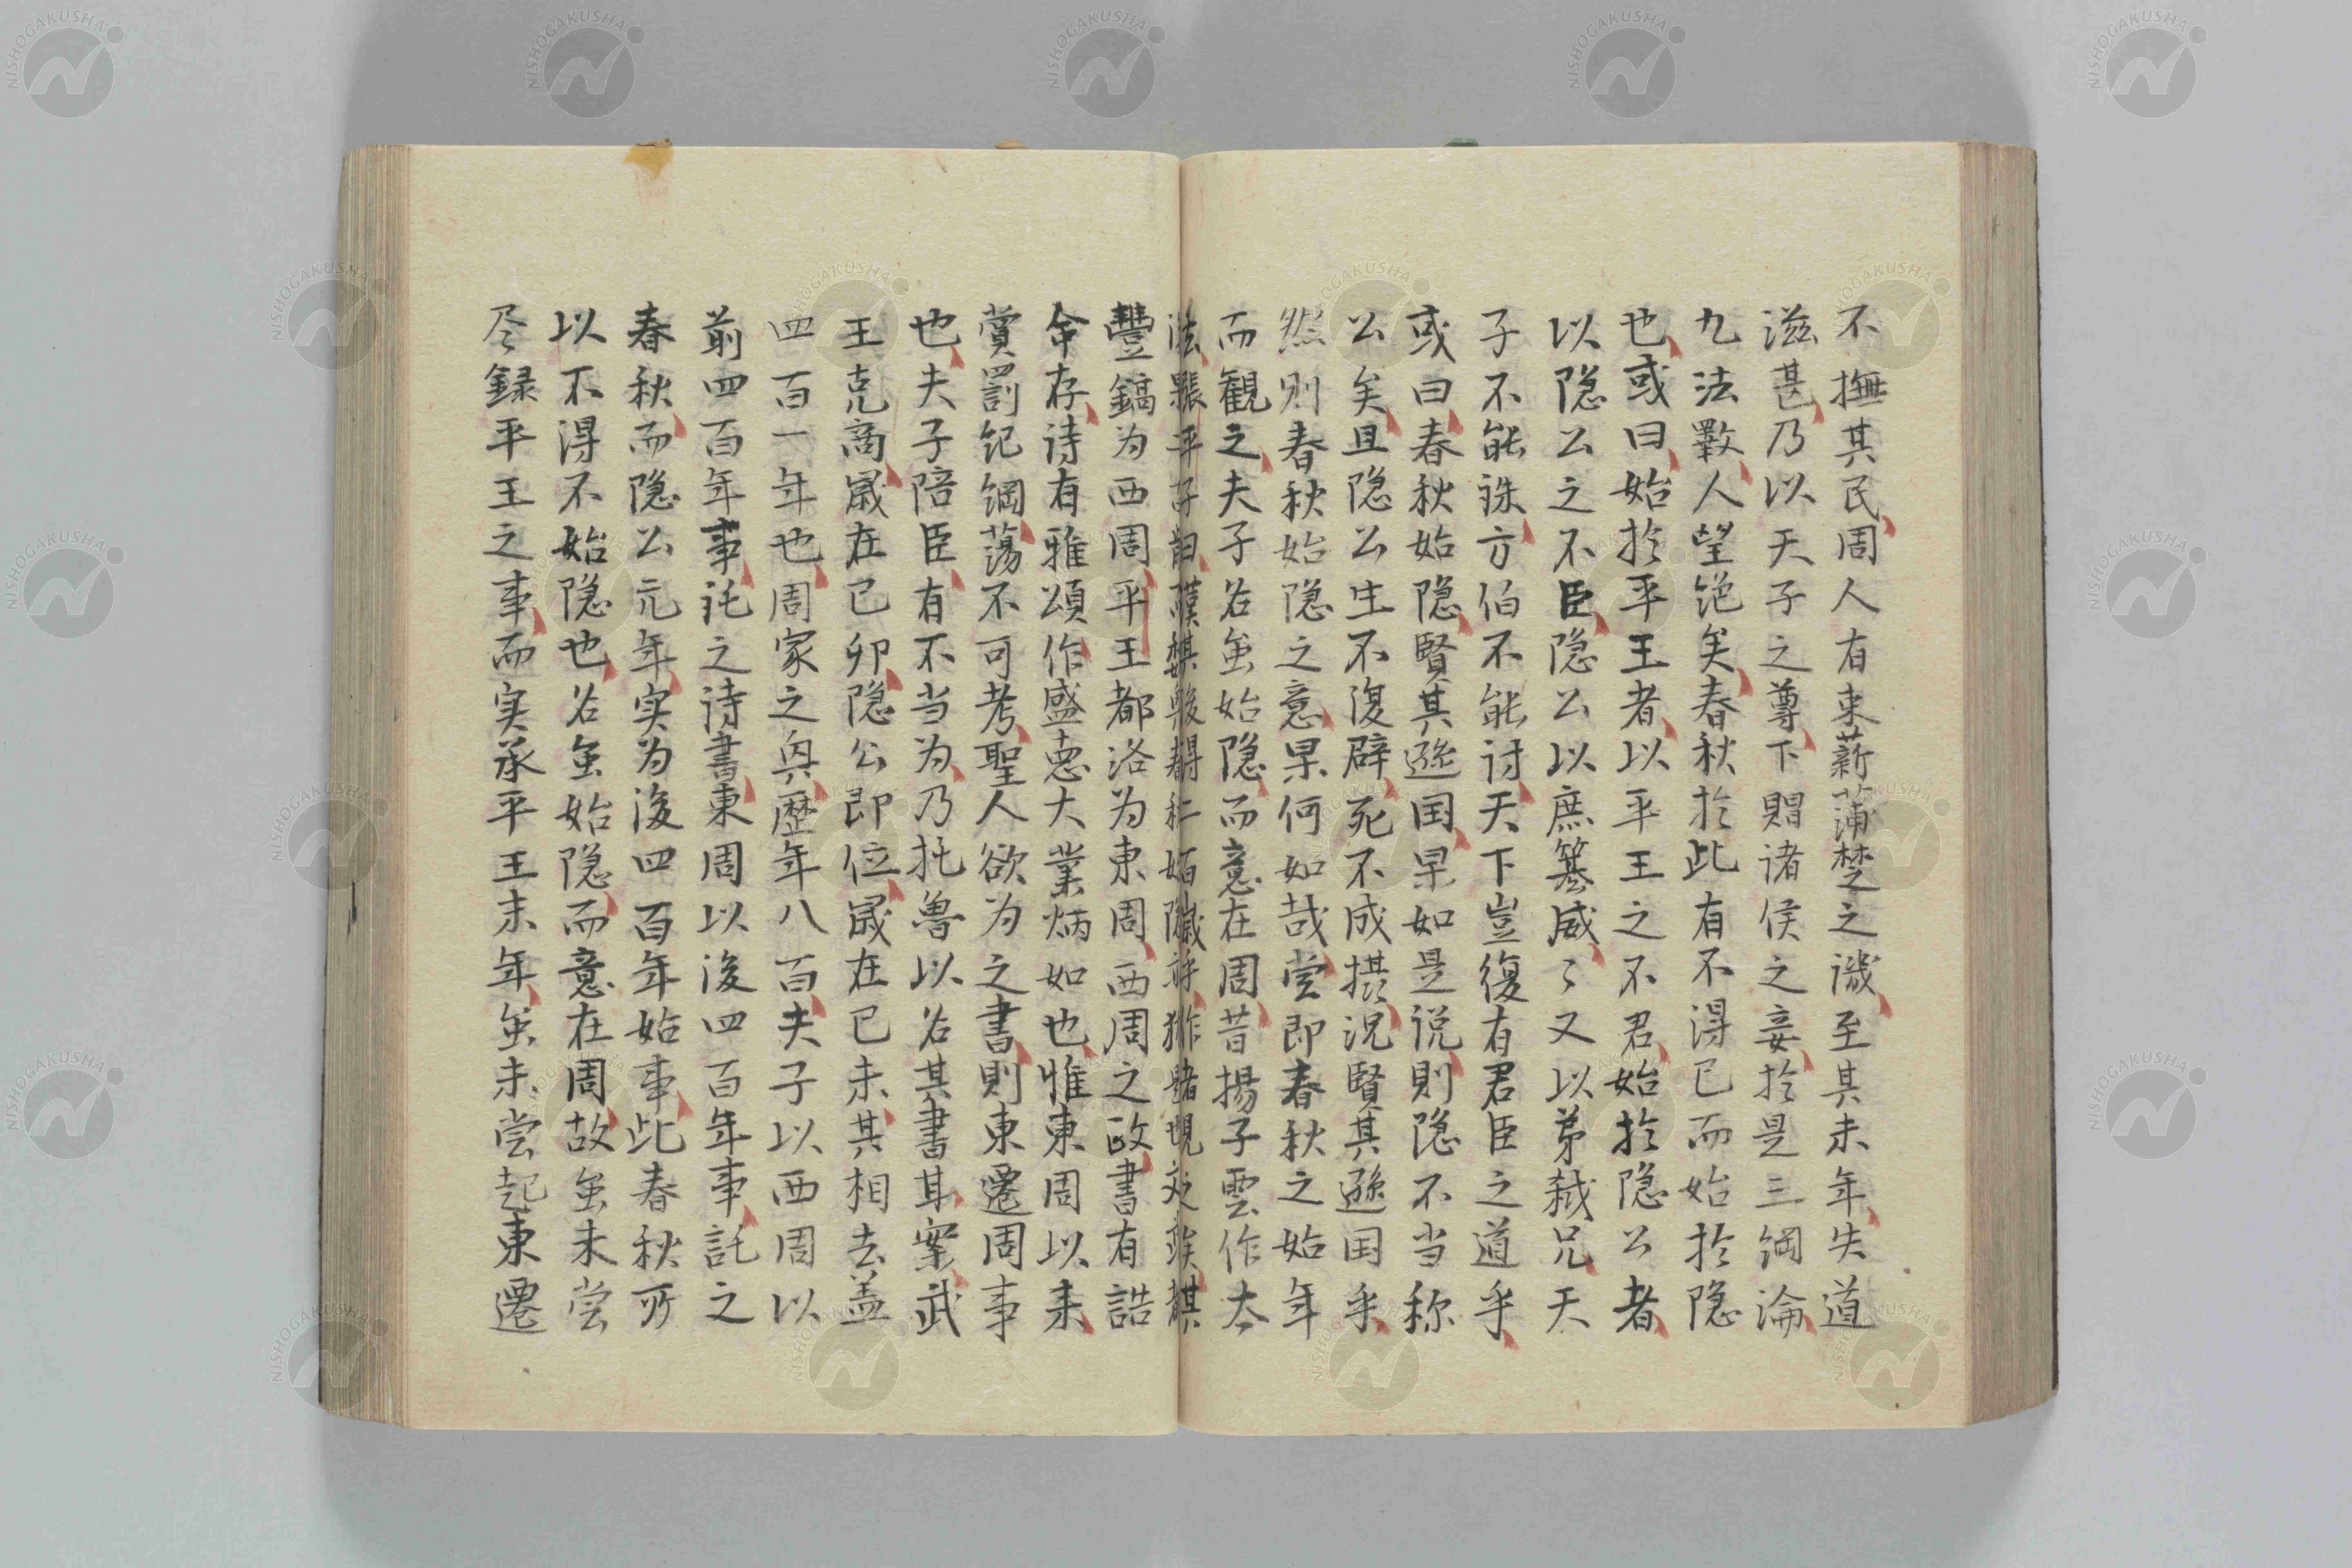 不撫其民周人有束薪蒲楚之譏至其末年失道
滋甚乃以天子之尊下賵諸侯之妾於是三綱淪
九法斁人望絶矣春秋於此有不得已而始於隠
也或曰始於平王者以平王之不君始於隠公者
以隠公之不臣隠公以庶簒威々又以弟弑兄天
子不能誅方伯不能討天下豈復有君臣之道乎
或曰春秋始隠賢其遜国果如是说則隠不当称
公矣且隠公生不復辟死不成摂况賢其遜国乎
然则春秋始隠之意果何如哉尝即春秋之始年
而観之夫子名虽始隠而意在周昔揚子雲作太
豐鎬为西周平王都洛为東周西周之政書有誥
命存诗有雅頌作盛悳大業炳如也惟東周以来
賞罰纪綱蕩不可考聖人欲为之書則東遷周事
也夫子陪臣有不当为乃托魯以名其書其寀武
王克商歳在已卯隠公即位歳在已未其相去盖
四百一年也周家之興歴年八百夫子以西周以
前四百年事託之诗書東周以後四百年事託之
春秋而隠公元年实为後四百年始事此春秋所
以不得不始隠也名虽始隠而意在周故虽未尝
尽録平王之事而实承平王末年虽未尝起東遷
NISHOGAKUSHA